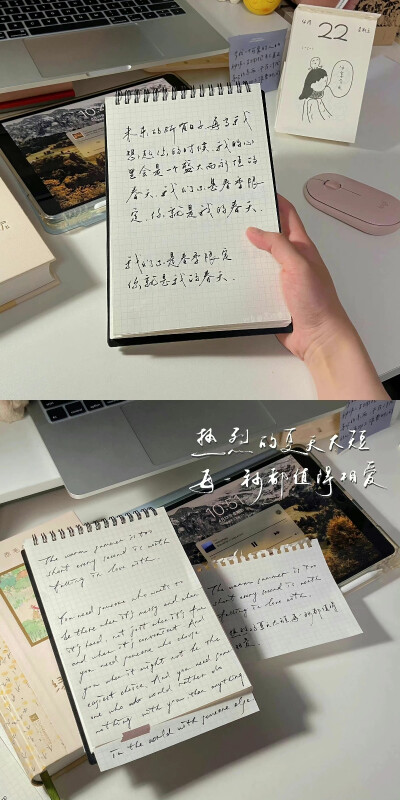 未来的所有日子，每当我
想起你的时候，我的心
里会是一个盛大而永恒的
春天，我们不是春季限
定，你就是我的春天。
我们不是春季限定
你就是我的春天。
22
热烈的夏天太短
每一秒都值得相爱
10:5
The warm summer is too
short every second is worth
falling in love with.
You need someone who wants to
be there when it's messy and when
it's hard, not just when it's fun
and when it's convenient. And
you need someone who chose
you when it might not be the
easiest choice. And you need some
one who would rather do
nothing with you than anything
in the world with someone else.
The warm summer is too
short every second is worth
falling in love with.
热烈的夏天太短，每一秒都值得
相爱。